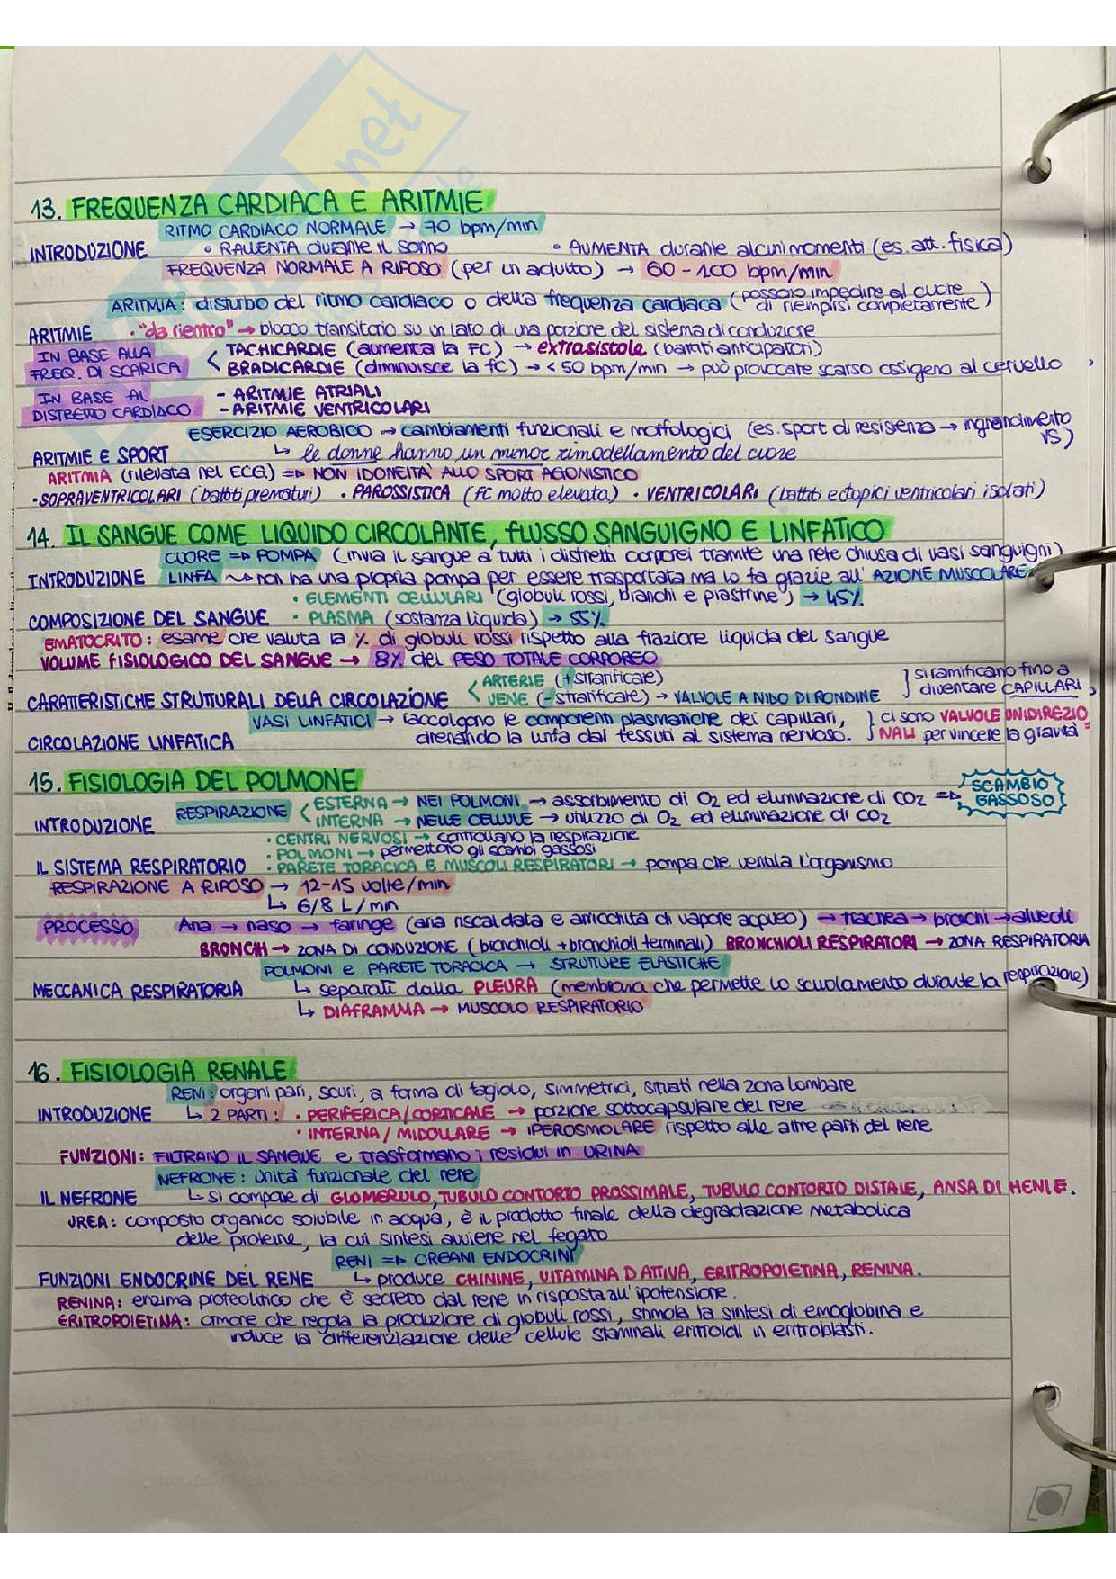 13. FREQUENZA CARDIACA E ARITMIE
RITMO CARDIACO NORMALE → 70 bpm/min
INTRODUZIONE • RALLENTA durante il sonno • AUMENTA durante alcuni momenti (es. att. fisica)
FREQUENZA NORMALE A RIPOSO (per un adulto) → 60-100 bpm/min
ARITMIA: disturbo del ritmo cardiaco o della frequenza cardiaca (possono impedire al cuore di riempirsi completamente)
ARITMIE • "da rientro" → blocco transitorio su un lato di una porzione del sistema di conduzione
IN BASE ALLA FREQ. DI SCARICA < TACHICARDIE (aumenta la FC) → extrasistole (battiti anticipatori)
BRADICARDIE (diminuisce la fc) → <50 bpm/min → può provocare scarso ossigeno al cervello
IN BASE AL DISTRETTO CARDIACO - ARITMIE ATRIALI
- ARITMIE VENTRICOLARI
ESERCIZIO AEROBICO → cambiamenti funzionali e morfologici (es. sport di resistenza → ingrandimento VS)
ARITMIE E SPORT ↳ le donne hanno un minor rimodellamento del cuore
ARITMIA (rilevata nel ECG) => NON IDONEITÀ ALLO SPORT AGONISTICO
• SOPRAVENTRICOLARI (battiti prematuri) • PAROSSISTICA (fc molto elevata) • VENTRICOLARI (battiti ectopici ventricolari isolati)
14. IL SANGUE COME LIQUIDO CIRCOLANTE, FLUSSO SANGUIGNO E LINFATICO
CUORE => POMPA (invia il sangue a tutti i distretti corporei tramite una rete chiusa di vasi sanguigni)
INTRODUZIONE LINFA ~> non ha una propria pompa per essere trasportata ma lo fa grazie all' AZIONE MUSCOLARE
• ELEMENTI CELLULARI (globuli rossi, bianchi e piastrine) → 45%
COMPOSIZIONE DEL SANGUE • PLASMA (sostanza liquida) → 55%
EMATOCRITO: esame che valuta la % di globuli rossi rispetto alla frazione liquida del sangue
VOLUME FISIOLOGICO DEL SANGUE → 8% del PESO TOTALE CORPOREO
CARATTERISTICHE STRUTTURALI DELLA CIRCOLAZIONE < ARTERIE (+ stratificate)
VENE (- stratificate) → VALVOLE A NIDO DI RONDINE } si ramificano fino a diventare CAPILLARI
VASI LINFATICI → raccolgono le componenti plasmatiche dei capillari,
CIRCOLAZIONE LINFATICA drenando la linfa dai tessuti al sistema nervoso. } ci sono VALVOLE UNIDIREZIONALI per vincere la gravità
15. FISIOLOGIA DEL POLMONE
RESPIRAZIONE < ESTERNA → NEI POLMONI → assorbimento di O2 ed eliminazione di CO2 => SCAMBIO GASSOSO
INTRODUZIONE INTERNA → NELLE CELLULE → utilizzo di O2 ed eliminazione di CO2
• CENTRI NERVOSI → controllano la respirazione
• POLMONI → permettono gli scambi gassosi
IL SISTEMA RESPIRATORIO • PARETE TORACICA E MUSCOLI RESPIRATORI → pompa che ventila l'organismo
RESPIRAZIONE A RIPOSO → 12-15 volte/min
↳ 6/8 L/min
PROCESSO Aria → naso → faringe (aria riscaldata e arricchita di vapore acqueo) → trachea → bronchi → alveoli
BRONCHI → ZONA DI CONDUZIONE (bronchioli + bronchioli terminali) BRONCHIOLI RESPIRATORI → ZONA RESPIRATORIA
POLMONI e PARETE TORACICA → STRUTTURE ELASTICHE
MECCANICA RESPIRATORIA ↳ separati dalla PLEURA (membrana che permette lo scivolamento durante la respirazione)
↳ DIAFRAMMA → MUSCOLO RESPIRATORIO
16. FISIOLOGIA RENALE
RENI: organi pari, scuri, a forma di fagiolo, simmetrici, situati nella zona lombare
INTRODUZIONE ↳ 2 PARTI: • PERIFERICA/CORTICALE → porzione sottocapsulare del rene
• INTERNA/MIDOLLARE → IPEROSMOLARE rispetto alle altre parti del rene
FUNZIONI: FILTRANO IL SANGUE e trasformano i residui in URINA
NEFRONE: unità funzionale del rene
IL NEFRONE ↳ si compone di GLOMERULO, TUBULO CONTORTO PROSSIMALE, TUBULO CONTORTO DISTALE, ANSA DI HENLE.
UREA: composto organico solubile in acqua, è il prodotto finale della degradazione metabolica
delle proteine, la cui sintesi avviene nel fegato
RENI => ORGANI ENDOCRINI
FUNZIONI ENDOCRINE DEL RENE ↳ produce CHININE, VITAMINA D ATTIVA, ERITROPOIETINA, RENINA.
RENINA: enzima proteolitico che è secreto dal rene in risposta all'ipotensione.
ERITROPOIETINA: ormone che regola la produzione di globuli rossi, stimola la sintesi di emoglobina e
induce la differenziazione delle cellule staminali eritroidi in eritroblasti.
net